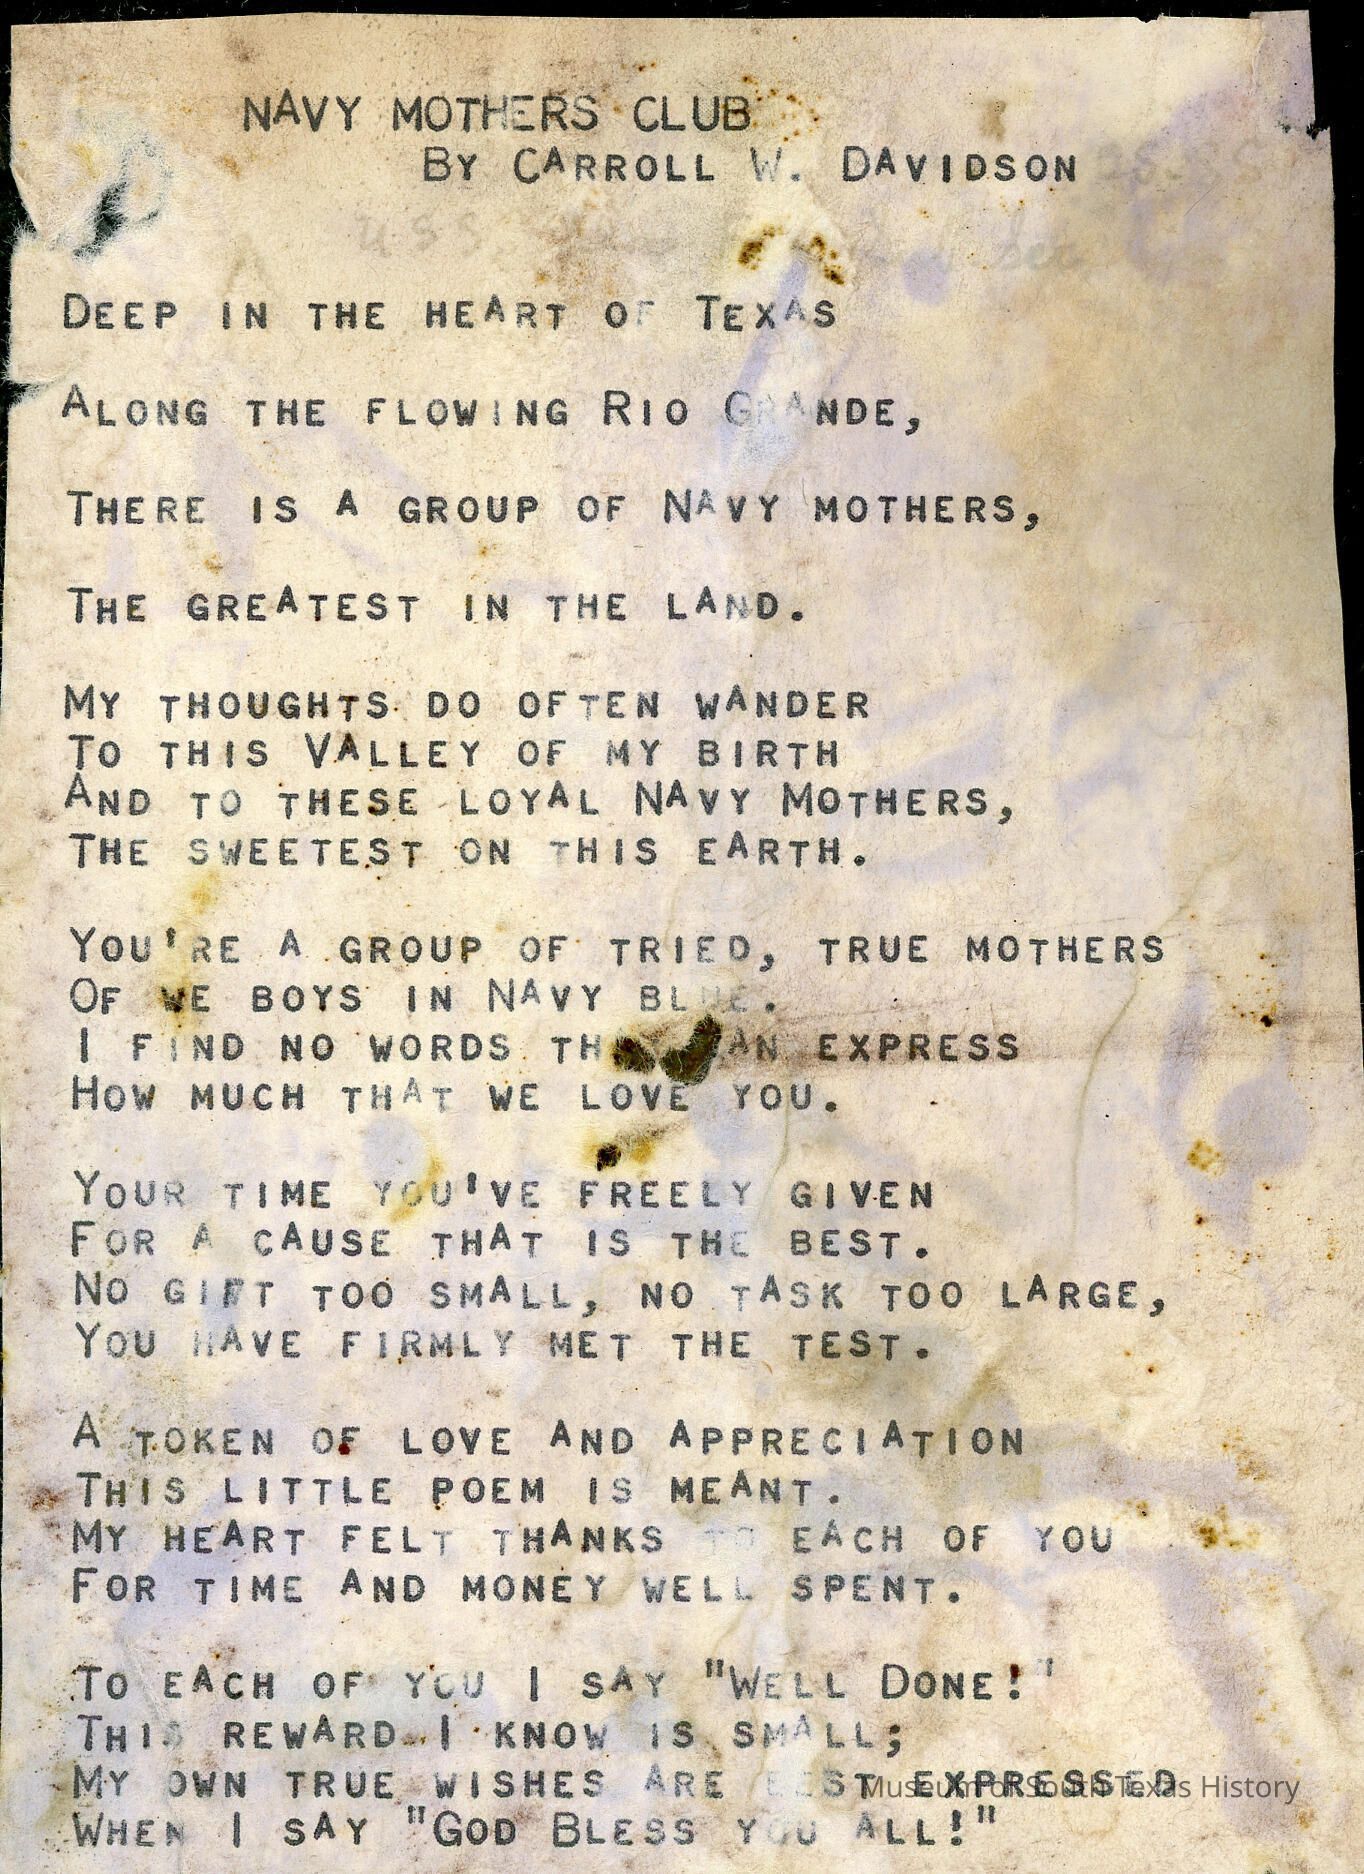 NAVY MOTHERS CLUB
BY CARROLL W. DAVIDSON
USS
DEEP IN THE HEART OF TEXAS
ALONG THE FLOWING RIO GRANDE,
THERE IS A GROUP OF NAVY MOTHERS,
THE GREATEST IN THE LAND.
MY THOUGHTS DO OFTEN WANDER
TO THIS VALLEY OF MY BIRTH
AND TO THESE LOYAL NAVY MOTHERS,
THE SWEETEST ON THIS EARTH.
YOU'RE A GROUP OF TRIED, TRUE MOTHERS
OF WE BOYS IN NAVY BLUE.
I FIND NO WORDS THAT CAN EXPRESS
HOW MUCH THAT WE LOVE YOU.
YOUR TIME YOU'VE FREELY GIVEN
FOR A CAUSE THAT IS THE BEST.
NO GIFT TOO SMALL, NO TASK TOO LARGE,
YOU HAVE FIRMLY MET THE TEST.
A TOKEN OF LOVE AND APPRECIATION
THIS LITTLE POEM IS MEANT.
MY HEART FELT THANKS TO EACH OF YOU
FOR TIME AND MONEY WELL SPENT.
TO EACH OF YOU I SAY "WELL DONE!"
THIS REWARD I KNOW IS SMALL;
MY OWN TRUE WISHES ARE BEST EXPRESSED
Museum of South Texas History
WHEN I SAY "GOD BLESS YOU ALL!"